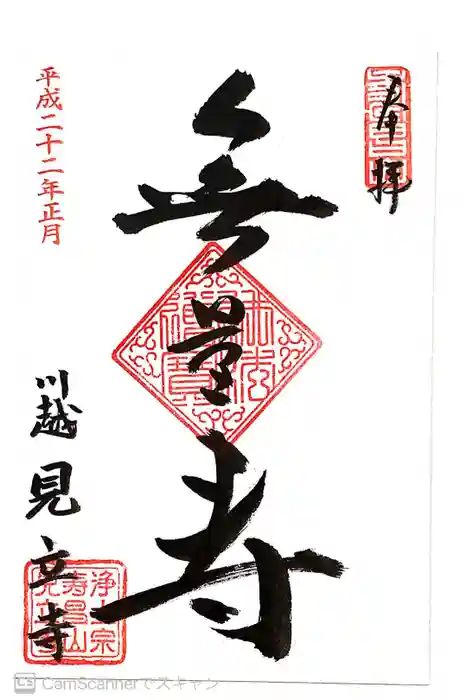 奉拝
無量寿
平成二十二年正月
川越 見立寺
浄土宗
寿昌山
見立寺
CS CamScannerでスキャン